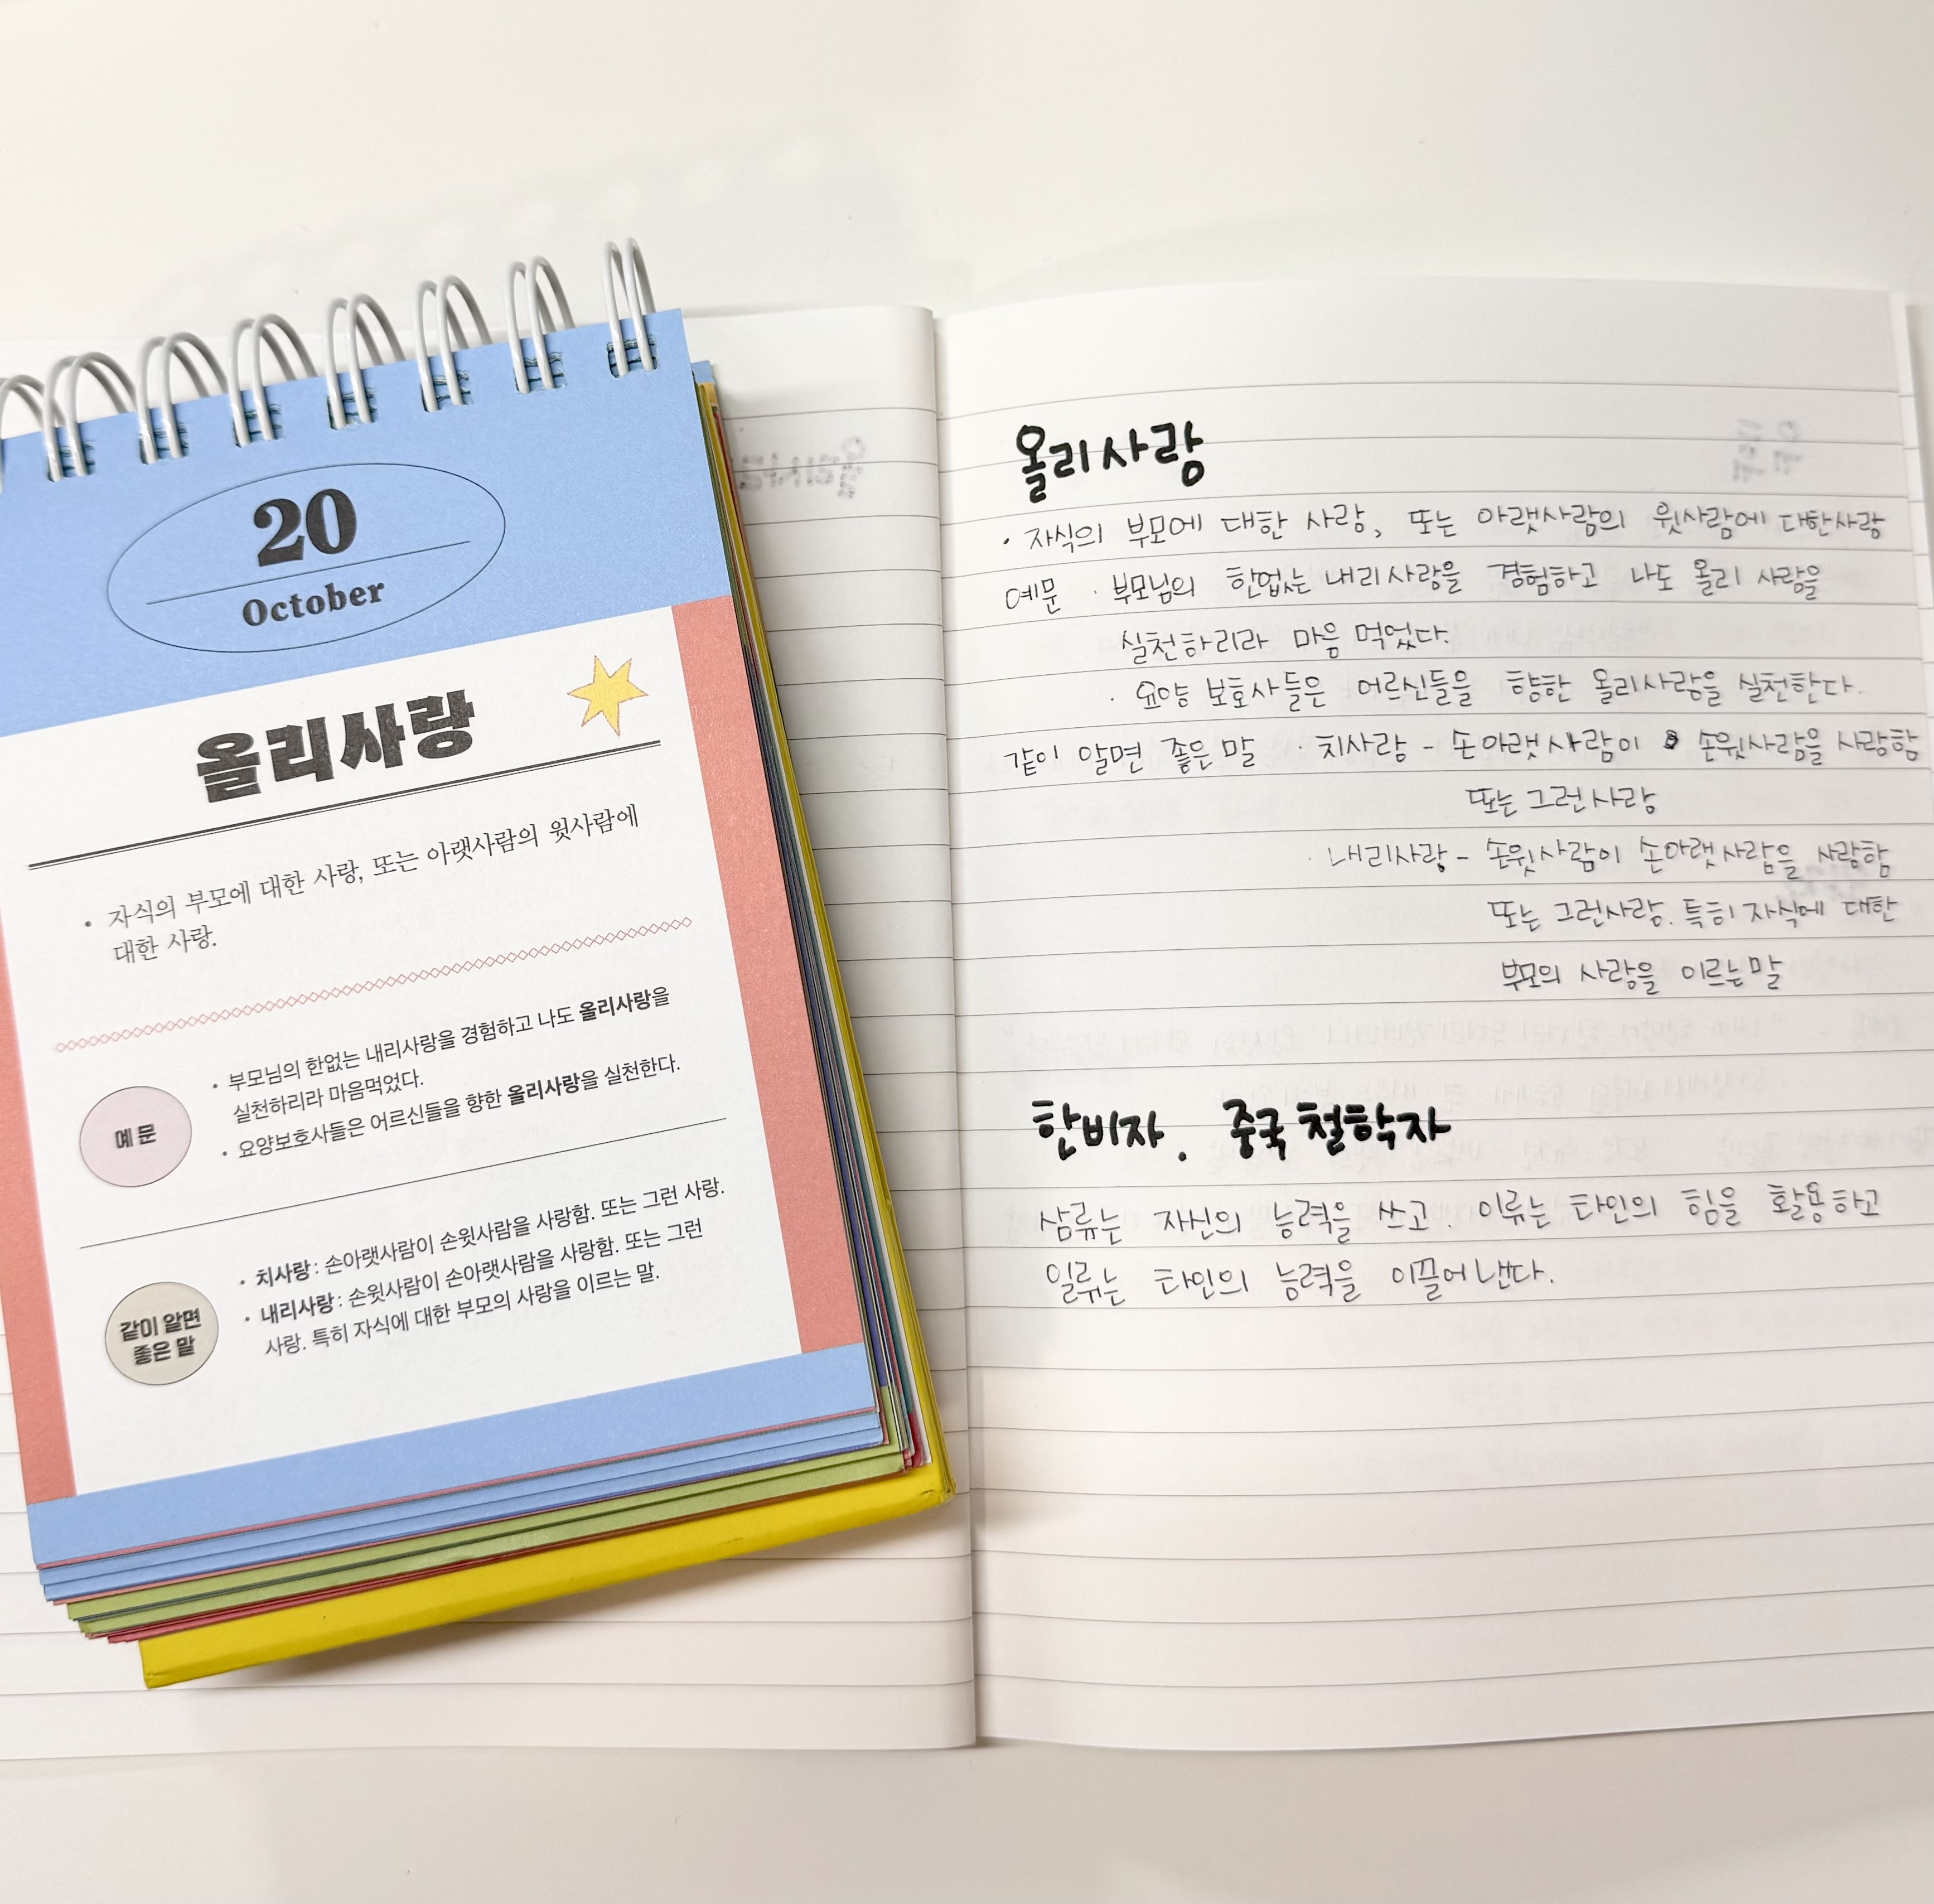 20
October
올리사랑
• 자식의 부모에 대한 사랑, 또는 아랫사람의 윗사람에
대한 사랑.
예문
• 부모님의 한없는 내리사랑을 경험하고 나도 올리사랑을
실천하리라 마음먹었다.
• 요양보호사들은 어르신들을 향한 올리사랑을 실천한다.
같이 알면
좋은 말
• 치사랑 : 손아랫사람이 손윗사람을 사랑함. 또는 그런 사랑.
• 내리사랑 : 손윗사람이 손아랫사람을 사랑함. 또는 그런
사랑. 특히 자식에 대한 부모의 사랑을 이르는 말.
올리사랑
· 자식의 부모에 대한 사랑, 또는 아랫사람의 윗사람에 대한사랑
예문 · 부모님의 한없는 내리사랑을 경험하고 나도 올리 사랑을
실천하리라 마음 먹었다.
· 요양 보호사들은 어르신들을 향한 올리사랑을 실천한다.
같이 알면 좋은 말 · 치사랑 - 손아랫사람이 손윗사람을 사랑함
또는 그런사랑
· 내리사랑 - 손윗사람이 손아랫사람을 사랑함
또는 그런사랑. 특히 자식에 대한
부모의 사랑을 이르는말
한비자. 중국 철학자
삼류는 자신의 능력을 쓰고. 이류는 타인의 힘을 활용하고
일류는 타인의 능력을 이끌어낸다.